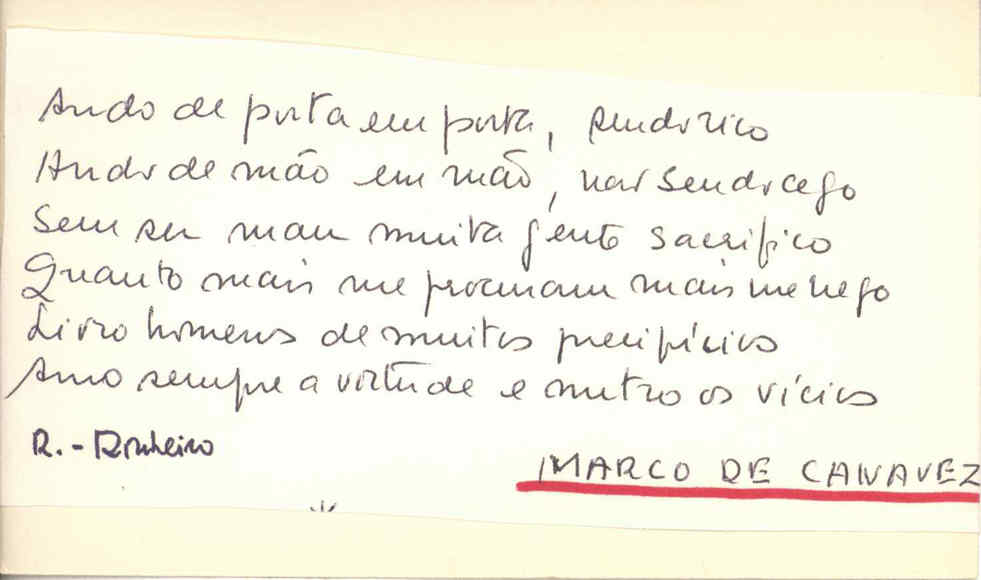 Ando de porta em porta, sendo rico
Ando de mão em mão, não sendo cego
Sem ser mau muita gente sacrifico
Quanto mais me procuram mais me nego
Livro homens de muitos precipícios
Amo sempre a virtude e nutro os vícios
R. - Dinheiro
MARCO DE CANAVEZ